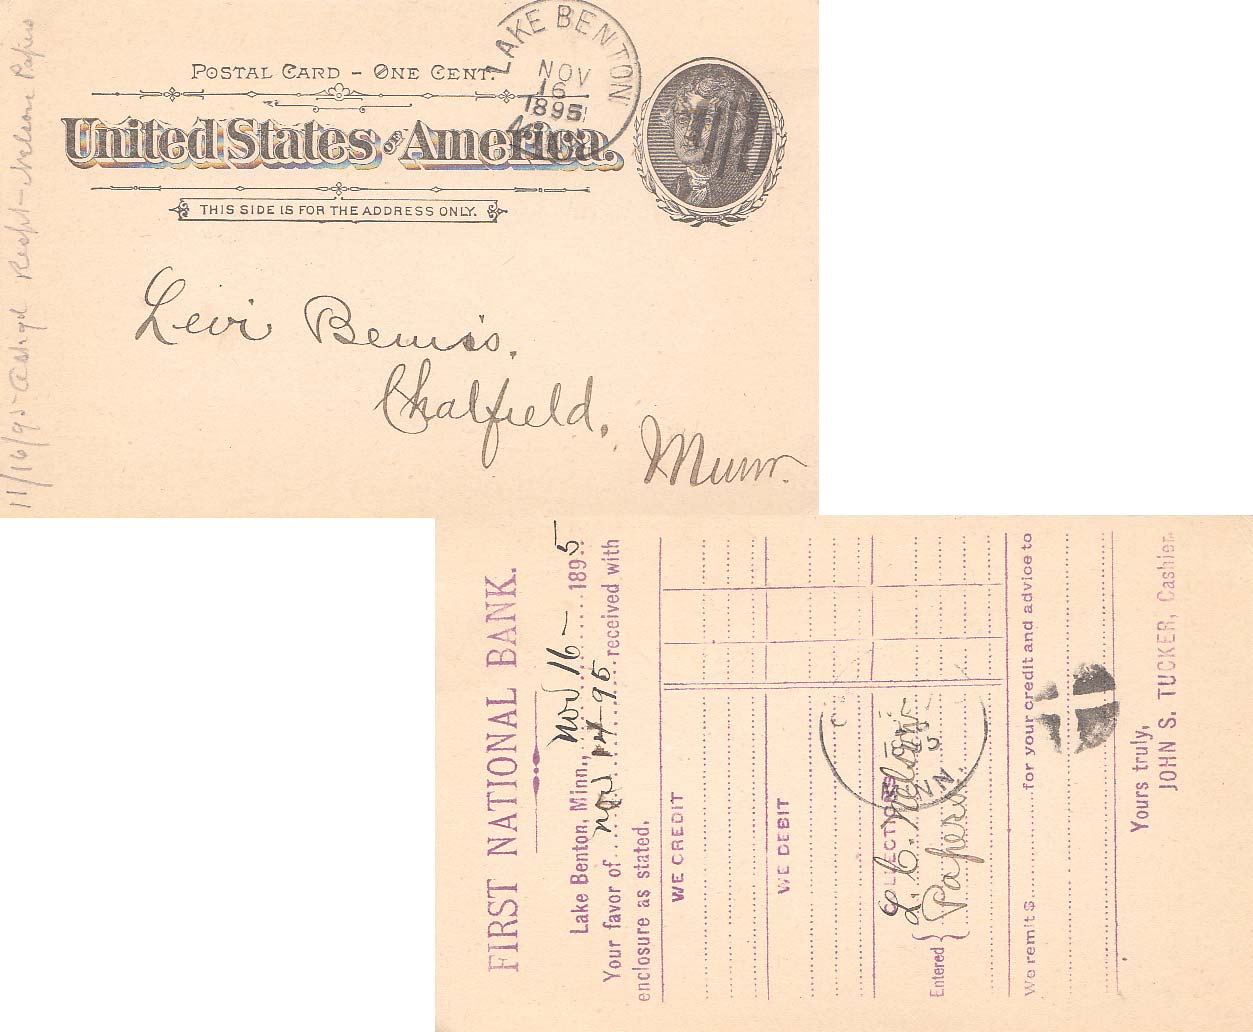 POSTAL CARD – ONE CENT.
United States of America.
THIS SIDE IS FOR THE ADDRESS ONLY.
LAKE BENTON
NOV
16
1895
MINN.
Levi Bemis.
Chatfield,
Minn.
11/16/95 Ackgd Recpt – Nelson Papers
FIRST NATIONAL BANK.
Lake Benton, Minn., Nov 16 – 1895
Your favor of Nov 14 - 95 received with
enclosure as stated.
WE CREDIT
WE DEBIT
COLLECTIONS
Entered { L. C. Nelson
Papers.
INN.
We remit $ for your credit and advice to
Yours truly,
JOHN S. TUCKER, Cashier.